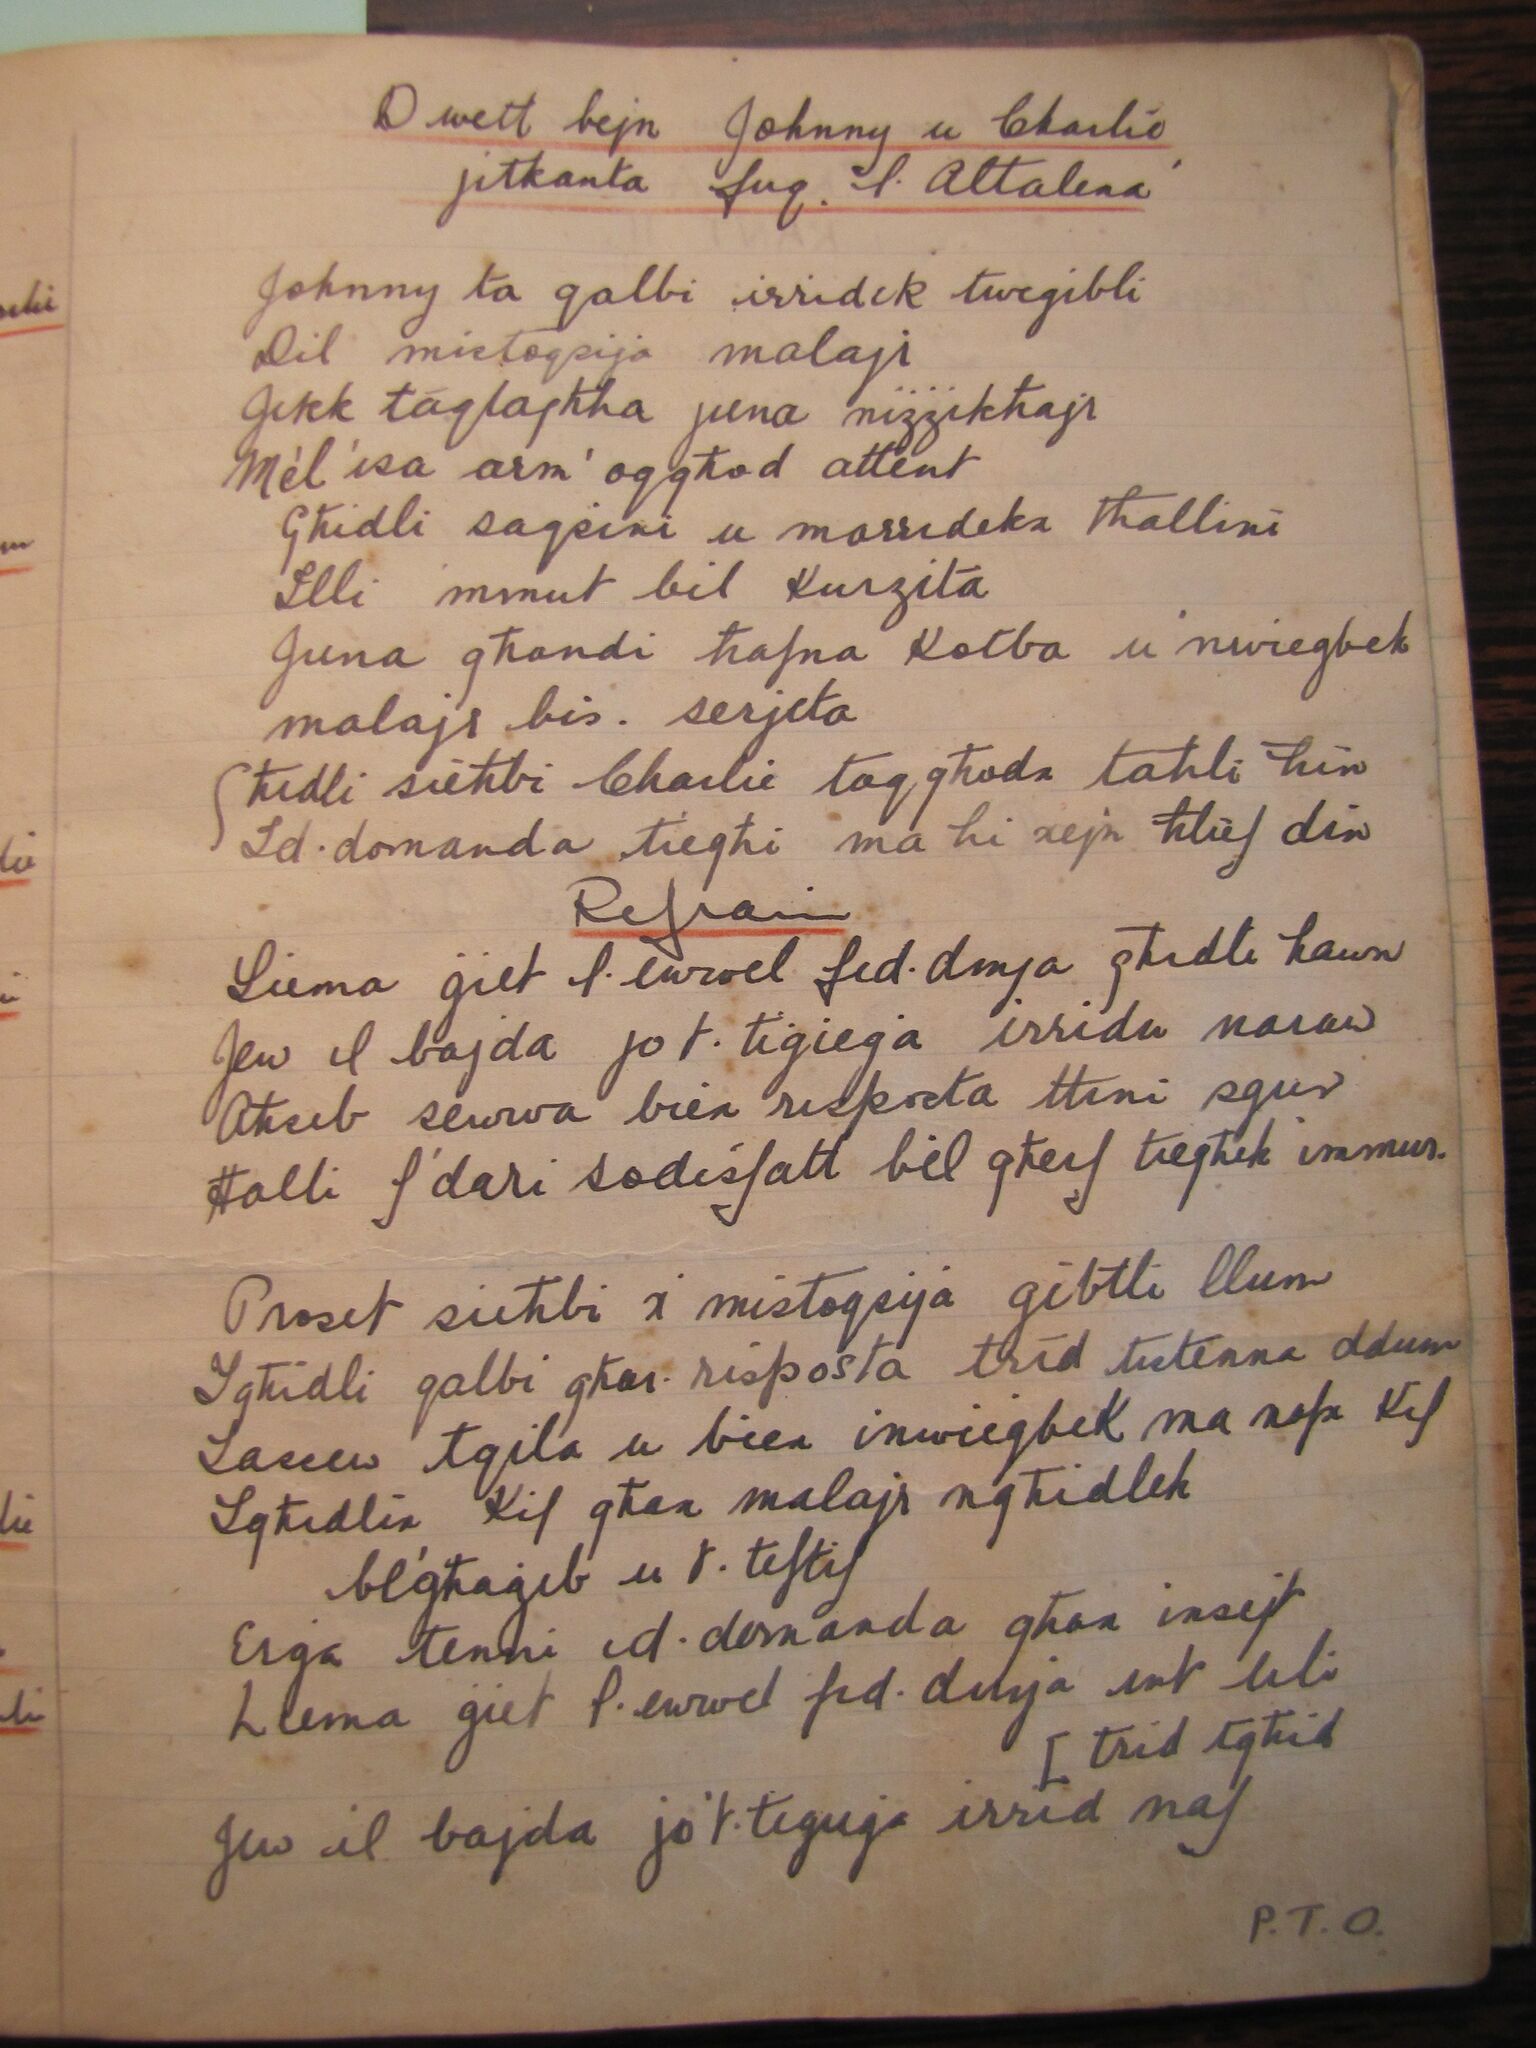 Dwett bejn Johnny u Charlie
jitkanta fuq l. Altalena
Johnny ta qalbi irridek twegibli
Dil mistoqsija malajr
Jekk taqlajtha jiena niżżikħajr
Mel' isa arm' oqgħod attent
Għidli saqsini u morridekx tħallini
Illi mmut bil kurzita
Jiena għandi ħafna kotba u nwiegbek
malajr bis. serjeta
Ħidli sieħbi Charlie toqgħodx taħli ħin
Id. domanda tiegħi ma hi xejn ħlief din
Refrain
Liema ġiet l. ewwel fid. dinja għidli hawn
Jew il bajda jo t. tiġieġa irridu naraw
Aħseb sewwa biex risposta ttini żgur
Ħalli f'dari sodisfatt bil għerf tiegħek immur.
Proset sieħbi x' mistoqsija ġibtli llum
Igħidli qalbi għar. risposta trid tistenna ddum
Lasew tqila u biex inwieġbek ma nafx kif
Igħidlix kif għax malajr ngħidlek
bl'għaġeb u t. teftif
Erġa tenni id. domanda għax insejt
Liema ġiet l. ewwel fid. dinja int illi
[ trid tgħid
Jew il bajda jo t. tiġieġa irrid naf
P.T.O.